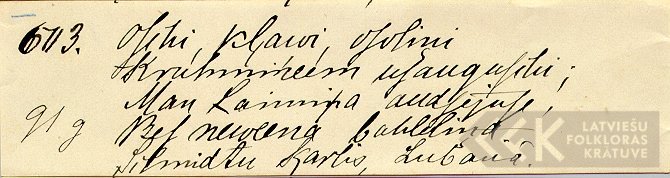 603. Oſchi, kļawi, oſoliņi
Kruhmiņeem uſauguſchi;
Man Laimiņa audſejuſe,
91 g Bet neweena bahleliņa.
Schmidtu Karlis, Lubanā.
LATVIEŠU
FOLKLORAS
KRĀTUVE